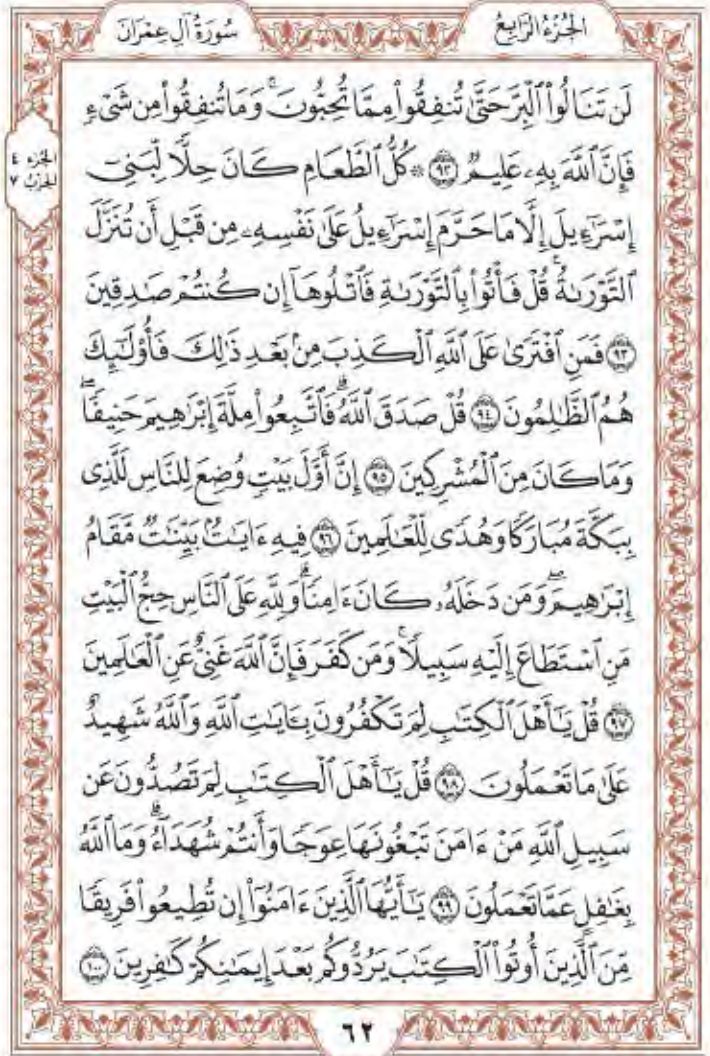 الجُزْءُ الرَّابِعُ
سُورَةُ آلِ عِمْرَانَ
الجزء ٤
الحزب ٧
لَن تَنَالُواْ ٱلْبِرَّ حَتَّىٰ تُنفِقُواْ مِمَّا تُحِبُّونَۚ وَمَا تُنفِقُواْ مِن شَىْءٍ
فَإِنَّ ٱللَّهَ بِهِۦ عَلِيمٌ ﴿٩٢﴾ ۞ كُلُّ ٱلطَّعَامِ كَانَ حِلًّا لِّبَنِىٓ
إِسْرَٰٓءِيلَ إِلَّا مَا حَرَّمَ إِسْرَٰٓءِيلُ عَلَىٰ نَفْسِهِۦ مِن قَبْلِ أَن تُنَزَّلَ
ٱلتَّوْرَىٰةُۗ قُلْ فَأْتُواْ بِٱلتَّوْرَىٰةِ فَٱتْلُوهَآ إِن كُنتُمْ صَٰدِقِينَ
﴿٩٣﴾ فَمَنِ ٱفْتَرَىٰ عَلَى ٱللَّهِ ٱلْكَذِبَ مِنۢ بَعْدِ ذَٰلِكَ فَأُوْلَٰٓئِكَ
هُمُ ٱلظَّٰلِمُونَ ﴿٩٤﴾ قُلْ صَدَقَ ٱللَّهُۗ فَٱتَّبِعُواْ مِلَّةَ إِبْرَٰهِيمَ حَنِيفًاۖ
وَمَا كَانَ مِنَ ٱلْمُشْرِكِينَ ﴿٩٥﴾ إِنَّ أَوَّلَ بَيْتٍ وُضِعَ لِلنَّاسِ لَلَّذِى
بِبَكَّةَ مُبَارَكًا وَهُدًى لِّلْعَٰلَمِينَ ﴿٩٦﴾ فِيهِ ءَايَٰتٌۢ بَيِّنَٰتٌ مَّقَامُ
إِبْرَٰهِيمَۖ وَمَن دَخَلَهُۥ كَانَ ءَامِنًاۗ وَلِلَّهِ عَلَى ٱلنَّاسِ حِجُّ ٱلْبَيْتِ
مَنِ ٱسْتَطَاعَ إِلَيْهِ سَبِيلًاۚ وَمَن كَفَرَ فَإِنَّ ٱللَّهَ غَنِىٌّ عَنِ ٱلْعَٰلَمِينَ
﴿٩٧﴾ قُلْ يَٰٓأَهْلَ ٱلْكِتَٰبِ لِمَ تَكْفُرُونَ بِـَٔايَٰتِ ٱللَّهِ وَٱللَّهُ شَهِيدٌ
عَلَىٰ مَا تَعْمَلُونَ ﴿٩٨﴾ قُلْ يَٰٓأَهْلَ ٱلْكِتَٰبِ لِمَ تَصُدُّونَ عَن
سَبِيلِ ٱللَّهِ مَنْ ءَامَنَ تَبْغُونَهَا عِوَجًا وَأَنتُمْ شُهَدَآءُۗ وَمَا ٱللَّهُ
بِغَٰفِلٍ عَمَّا تَعْمَلُونَ ﴿٩٩﴾ يَٰٓأَيُّهَا ٱلَّذِينَ ءَامَنُوٓاْ إِن تُطِيعُواْ فَرِيقًا
مِّنَ ٱلَّذِينَ أُوتُواْ ٱلْكِتَٰبَ يَرُدُّوكُم بَعْدَ إِيمَٰنِكُمْ كَٰفِرِينَ ﴿١٠٠﴾
٦٢